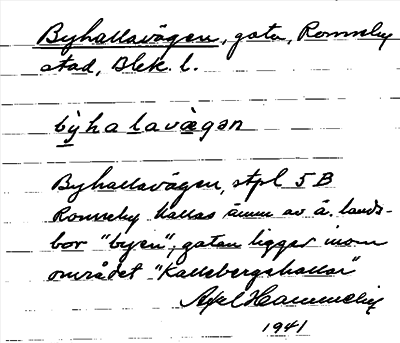 Byhallavägen, gata, Ronneby
stad, Blek. l.
byhalavægən
Byhallavägen, stpl 5 B
Ronneby kallas ännu av ä. lands-
bor "byen"; gatan ligger inom
området "Kallebergahallar"
Axel Hammelin
1941